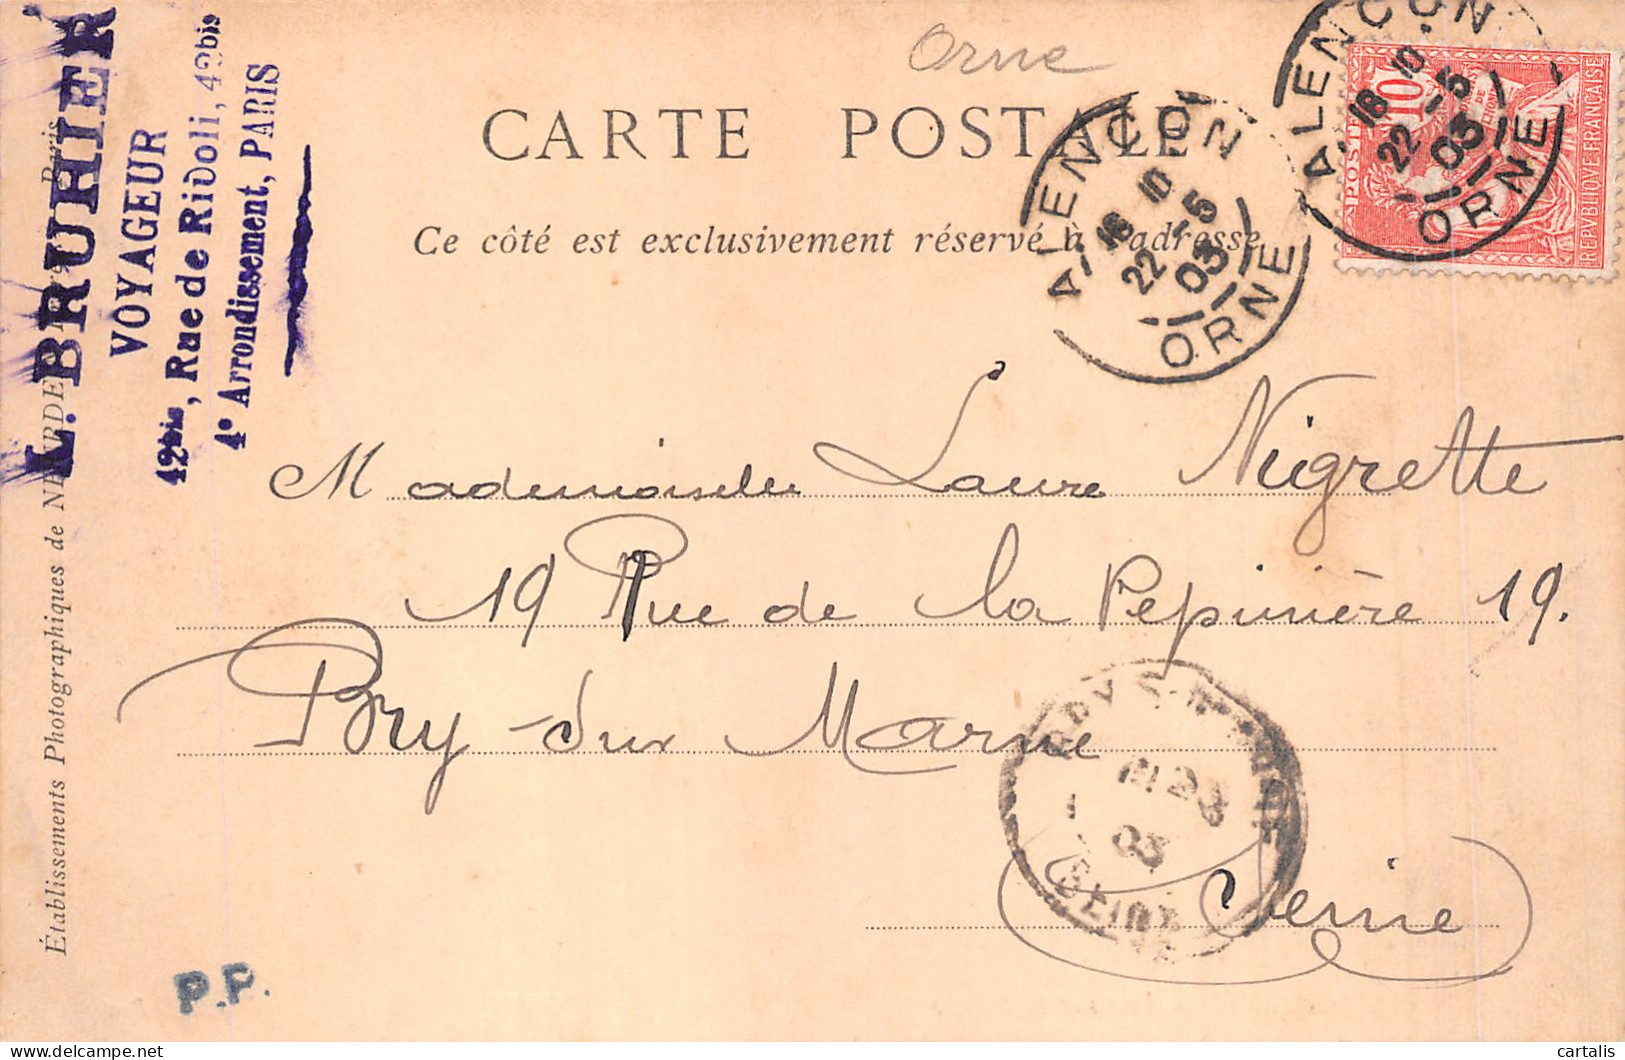 Orne
CARTE POSTALE
Ce côté est exclusivement réservé à l'adresse
L. BRUHIER
VOYAGEUR
42bis, Rue de Rivoli, 42bis
4e Arrondissement, PARIS
Établissements Photographiques de NEURDEIN Paris
ALENÇON
18 10
22-5
03
ORNE
ALENÇON
18 10
22-5
03
ORNE
POSTES
10
REPVBLIQVE FRANÇAISE
Mademoiselle Laure Nigrette
19 Rue de la Pépinière 19.
Bry-sur Marne
Seine
BRY-S-MARNE
23
03
(SEINE)
P.P.
cartalis